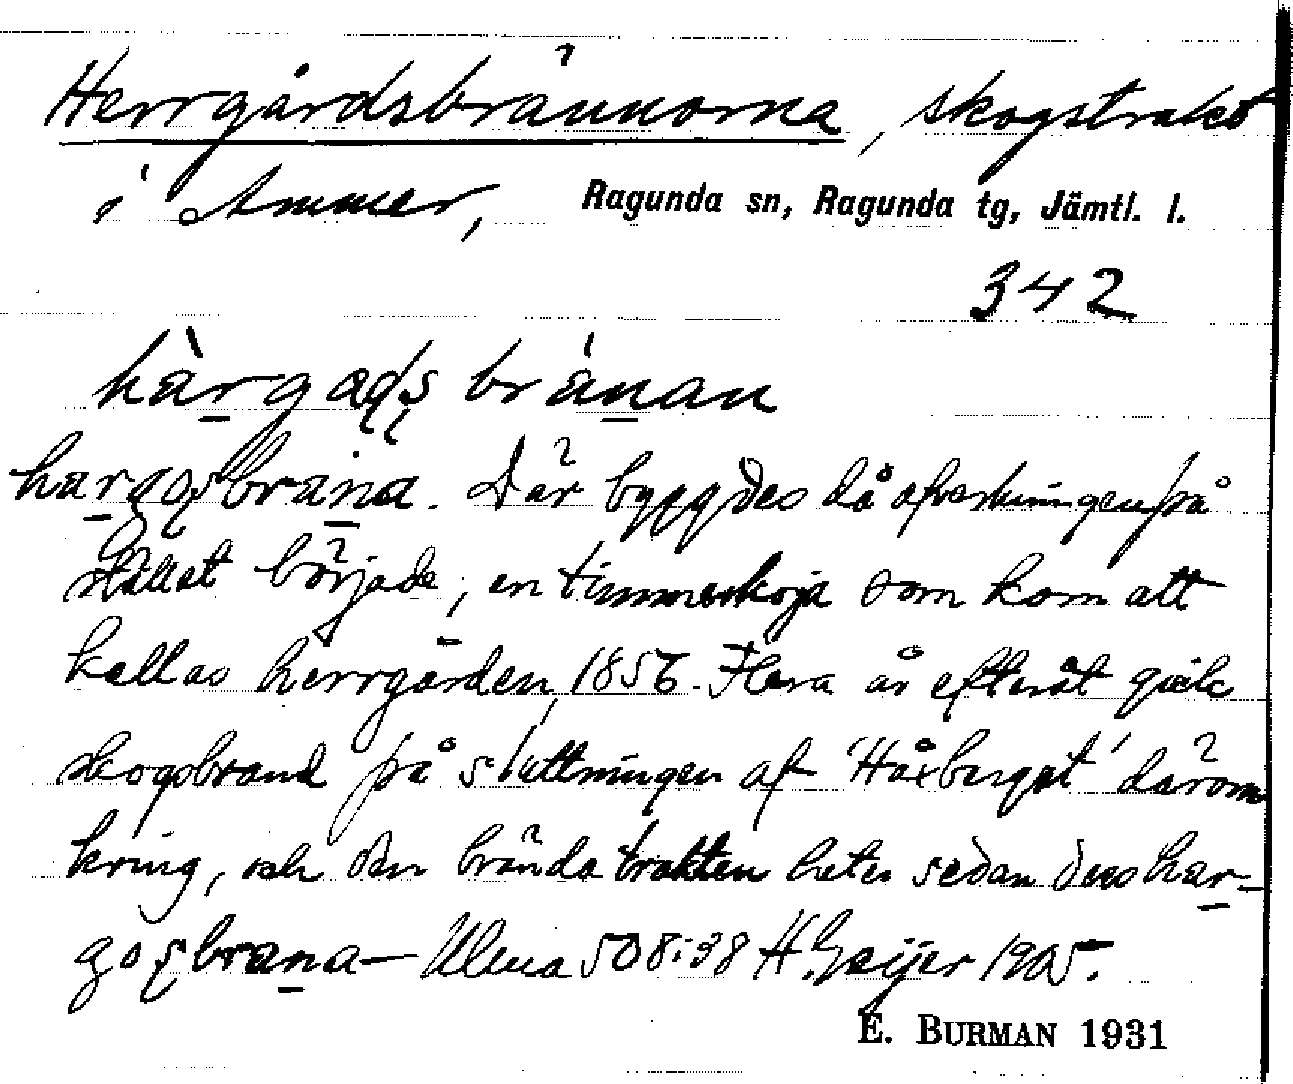 Herrgårdsbrännorna, skogstrakt
i Ammer, Ragunda sn, Ragunda tg, Jämtl. l.
342
hàrgaḍṣ bránan
hargoṣbrana. Där byggdes då afverkningen på
stället började, en timmerkoja som kom att
kallas herrgården, 1856. Flera år efteråt gick
skogsbrand på sluttningen af 'Håxberget' därom
kring, och den brända trakten heter sedan dess har-
goṣbrana— Ulma 508:38 H. Geijer 1905.
E. BURMAN 1931